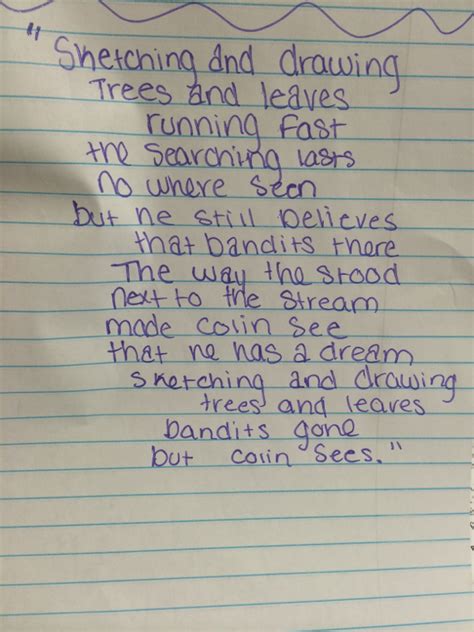 "Sketching and drawing
Trees and leaves
running fast
the searching lasts
no where seen
but he still believes
that bandits there
The way the stood
next to the stream
made colin see
that he has a dream
sketching and drawing
trees and leaves
bandits gone
but colin sees."